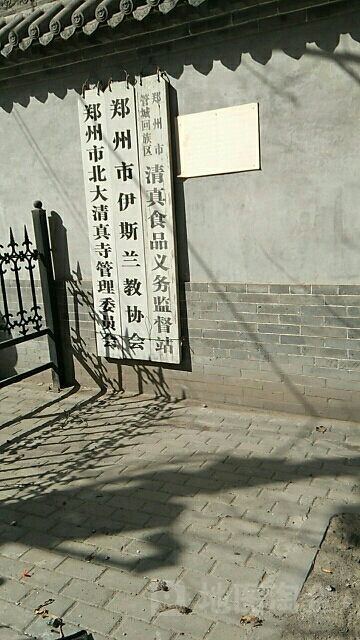 郑州市
管城回族区
清真食品义务监督站
郑州市伊斯兰教协会
郑州市北大清真寺管理委员会